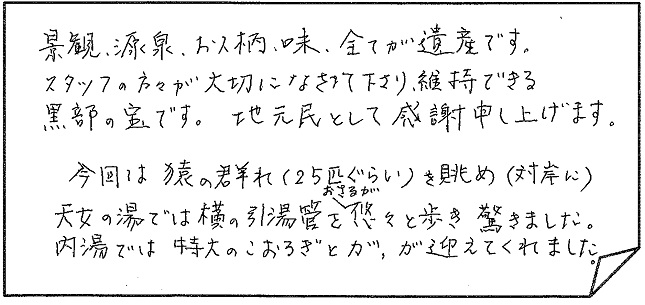 景観、源泉、お人柄、味、全てが遺産です。
スタッフの方々が大切になさって下さり、維持できる
黒部の宝です。 地元民として感謝申し上げます。
今回は猿の群れ(25匹ぐらい)を眺め(対岸に)
おさるが
天女の湯では横の引湯管を悠々と歩き驚きました。
内湯では特大のこおろぎとガ、が迎えてくれました。